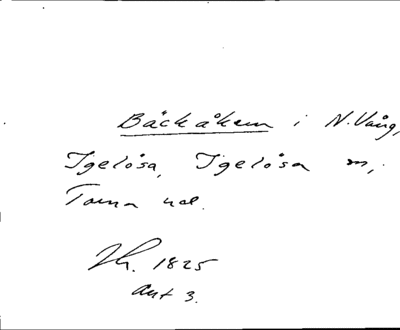 Bäckåkern i N. Vång,
Igelösa, Igelösa sn,
Torna hd.
Sk. 1825
akt 3.